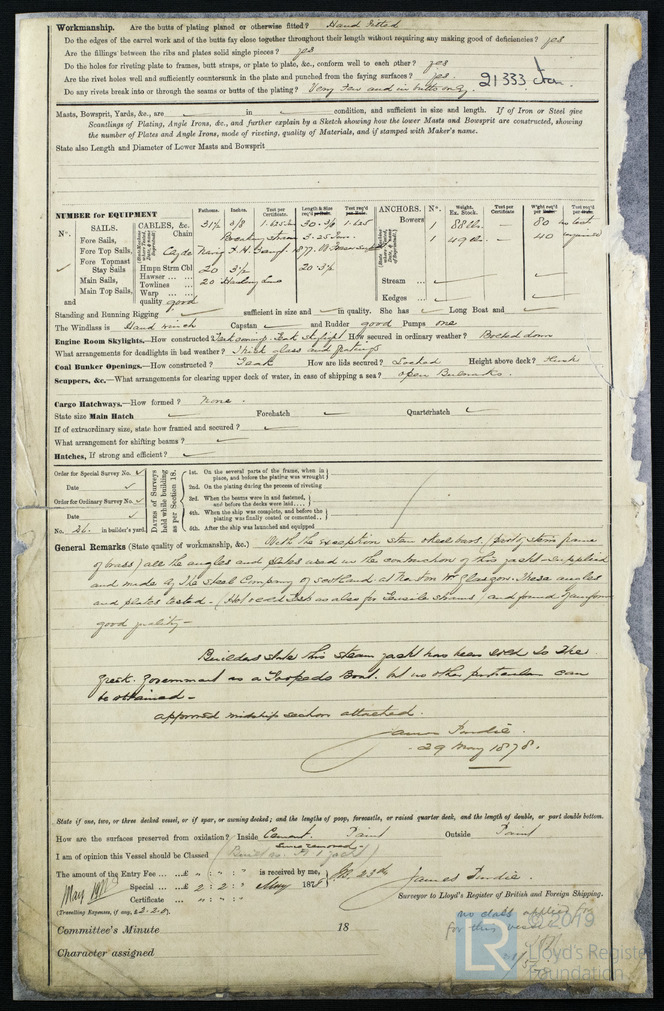 Workmanship. Are the butts of plating planed or otherwise fitted? Hand Fitted
Do the edges of the carvel work and of the butts fay close together throughout their length without requiring any making good of deficiencies? yes
Are the fillings between the ribs and plates solid single pieces? yes
Do the holes for riveting plate to frames, butt straps, or plate to plate, &c., conform well to each other? yes
Are the rivet holes well and sufficiently countersunk in the plate and punched from the faying surfaces? yes.
21333 Iron
Do any rivets break into or through the seams or butts of the plating? Very few and in butts only.
Masts, Bowsprit, Yards, &c., are in condition, and sufficient in size and length. If of Iron or Steel give
Scantlings of Plating, Angle Irons, &c., and further explain by a Sketch showing how the lower Masts and Bowsprit are constructed, showing
the number of Plates and Angle Irons, mode of riveting, quality of Materials, and if stamped with Maker's name.
State also Length and Diameter of Lower Masts and Bowsprit
NUMBER for EQUIPMENT
Fathoms. Inches. Test per Certificate. Length & Size req'd per Rule. Test req'd per Rule. ANCHORS. Nº. Weight. Ex. Stock. Test per Certificate W'ght req'd per Rule Test req'd per Rule.
Nº. SAILS. CABLES, &c.
Chain
Bowers 1 88 lbs. — 80 no test
Fore Sails, Breaking strain 3.25 Tons. 1 49 lbs. — 40 required
Fore Top Sails,
Fore Topmast
Stay Sails Hmpn Strm Cbl 20 3½ 20 3½
Main Sails, Hawser
Towlines 20 Hauling Line Stream
Main Top Sails, Warp
and quality good Kedges
Standing and Running Rigging sufficient in size and in quality. She has Long Boat and
The Windlass is Hand winch Capstan and Rudder good Pumps one
Engine Room Skylights.—How constructed? Teak coming Teak skylight How secured in ordinary weather? Bolted down
What arrangements for deadlights in bad weather? Thick glass and gratings
Coal Bunker Openings.—How constructed? Teak How are lids secured? Locked Height above deck?
Scuppers, &c.—What arrangements for clearing upper deck of water, in case of shipping a sea? open Bulwarks.
Cargo Hatchways.—How formed? None.
State size Main Hatch Forehatch Quarterhatch
If of extraordinary size, state how framed and secured?
What arrangement for shifting beams?
Hatches, If strong and efficient?
Order for Special Survey No.
Date
Order for Ordinary Survey No.
Date
No. 26. in builder's yard.
DATES of Surveys held while building as per Section 18.
1st. On the several parts of the frame, when in place, and before the plating was wrought
2nd. On the plating during the process of riveting
3rd. When the beams were in and fastened, and before the decks were laid
4th. When the ship was complete, and before the plating was finally coated or cemented
5th. After the ship was launched and equipped
General Remarks (State quality of workmanship, &c.) With the exception stem & keel bars, (part of stern frame
of brass) all the angles and plates used in the construction of this yacht was supplied
and made by The Steel Company of Scotland at Newton Nr Glasgow. These angles
and plates tested - (Hot & cold tests as also for tensile strains) and found of uniform
good quality -
Builders state this steam yacht has been sold to the
Greek Government as a Torpedo Boat. but no other particulars can
be obtained -
approved midship section attached.
29 May 1878.
State if one, two, or three decked vessel, or if spar, or awning decked; and the lengths of poop, forecastle, or raised quarter deck, and the length of double, or part double bottom.
How are the surfaces preserved from oxidation? Inside Cement. Paint Outside Paint
since removed
I am of opinion this Vessel should be Classed
The amount of the Entry Fee ... £ is received by me,
Special ... £ 2 : 2 : May 1878
Certificate ...
(Travelling Expenses, if any, £2-2-0).
Surveyor to Lloyd's Register of British and Foreign Shipping.
no class applied for
for this vessel
Committee's Minute 18
Character assigned
LR
© 2019
Lloyd's Register
Foundation